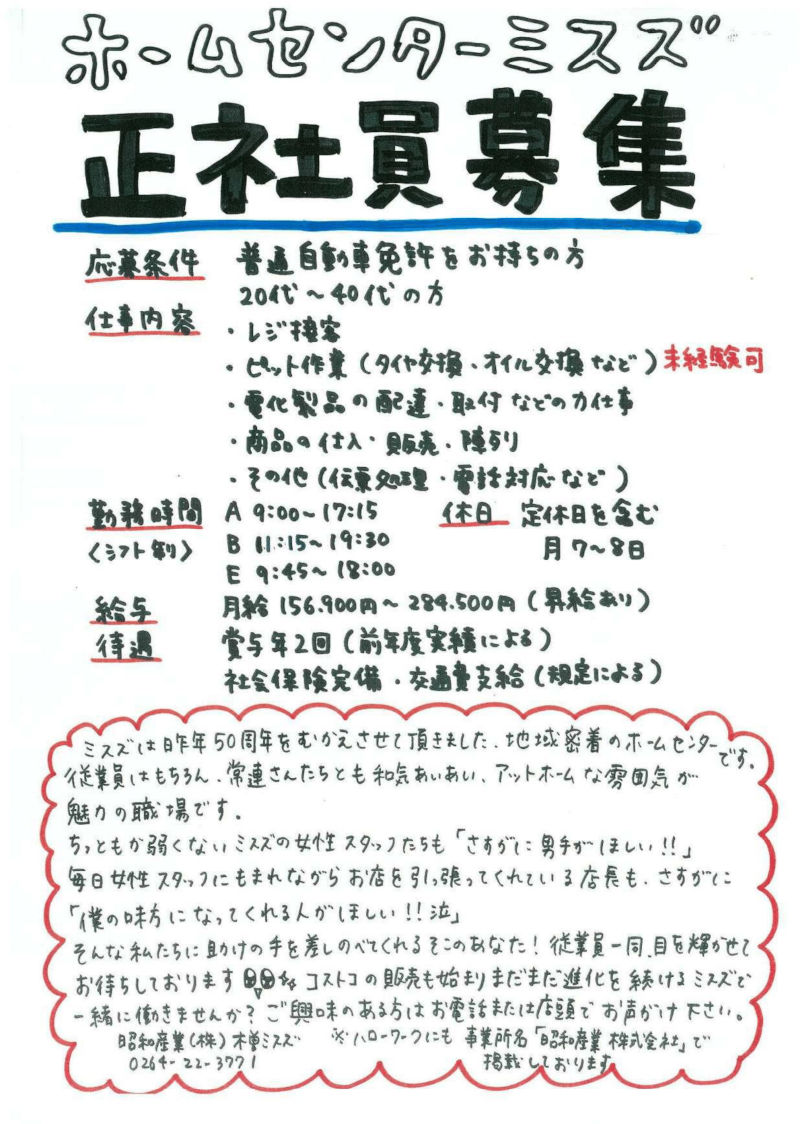 ホームセンターミスズ
正社員募集
応募条件 普通自動車免許をお持ちの方
20代～40代の方
仕事内容
・レジ接客
・ピット作業(タイヤ交換・オイル交換など) 未経験可
・電化製品の配達・取付などの力仕事
・商品の仕入・販売・陳列
・その他(伝票処理・電話対応など)
勤務時間 A 9:00～17:15 休日 定休日を含む
〈シフト制〉 B 11:15～19:30 月7～8日
E 9:45～18:00
給与 月給156.900円～284.500円(昇給あり)
待遇 賞与年2回(前年度実績による)
社会保険完備・交通費支給(規定による)
ミスズは昨年50周年をむかえさせて頂きました、地域密着のホームセンターです。
従業員はもちろん、常連さんたちとも和気あいあい、アットホームな雰囲気が
魅力の職場です。
ちっともか弱くないミスズの女性スタッフたちも「さすがに男手がほしい!!」
毎日女性スタッフにもまれながらお店を引っ張ってくれている店長も、さすがに
「僕の味方になってくれる人がほしい!!泣」
そんな私たちに助けの手を差しのべてくれるそこのあなた!従業員一同、目を輝かせて
お待ちしております コストコの販売も始まりまだまだ進化を続けるミスズで
一緒に働きませんか?ご興味のある方はお電話または店頭でお声がけ下さい。
昭和産業(株)木曽ミスズ ※ハローワークにも 事業所名「昭和産業株式会社」で
0264-22-3771 掲載しております